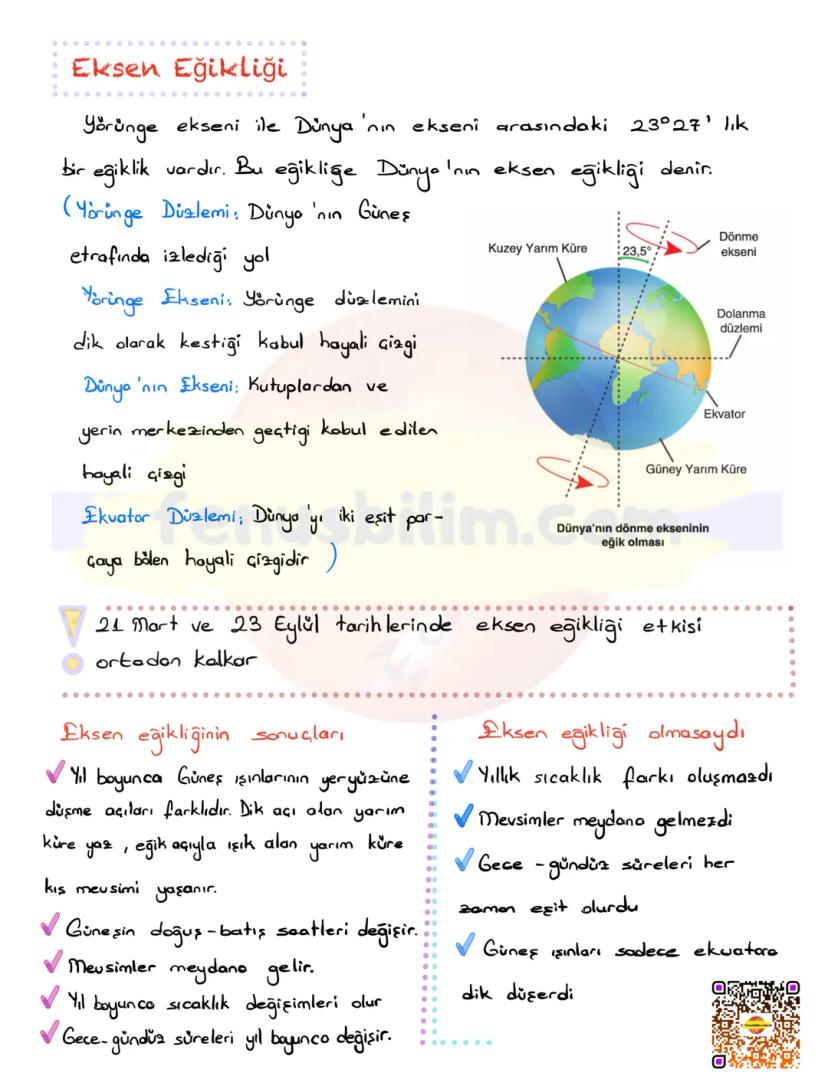 Eksen Eğikliği
Yörünge ekseni ile Dünya'nın ekseni arasındaki 23°27' lık
bir eğiklik vardır. Bu eğikliğe Dünya'nın eksen eğikliği denir.
(Yörünge Düzlemi: Dünya'nın Güneş
etrafında izlediği yol
Yörünge Ekseni: Yörünge düzlemini
dik olarak kestiği kabul hayali çizgi
Dünya'nın Ekseni: Kutuplardan ve
yerin merkezinden geçtigi kabul edilen
hayali çizgi
Ekvator Düzlemi: Dünya'yı iki eşit par-
çaya bölen hayali çizgidir )
Kuzey Yarım Küre
23,5°
Dönme
ekseni
Dolanma
düzlemi
Ekvator
Güney Yarım Küre
Dünya'nın dönme ekseninin
eğik olması
fenusbilim.com
! 21 Mart ve 23 Eylül tarihlerinde eksen eğikliği etkisi
ortadan kalkar
Eksen eğikliğinin sonuçları
✓ Yıl boyunca Güneş ışınlarının yeryüzüne
düşme açıları farklıdır. Dik açı alan yarım
küre yaz , eğik açıyla ışık alan yarım küre
kış mevsimi yaşanır.
✓ Güneşin doğuş-batış saatleri değişir.
✓ Mevsimler meydana gelir.
✓ Yıl boyunca sıcaklık değişimleri olur
✓ Gece-gündüz süreleri yıl boyunca değişir.
Eksen eğikliği olmasaydı
✓ Yıllık sıcaklık farkı oluşmazdı
✓ Mevsimler meydana gelmezdi
✓ Gece -gündüz süreleri her
zaman eşit olurdu
✓ Güneş ışınları sadece ekvatora
dik düşerdi